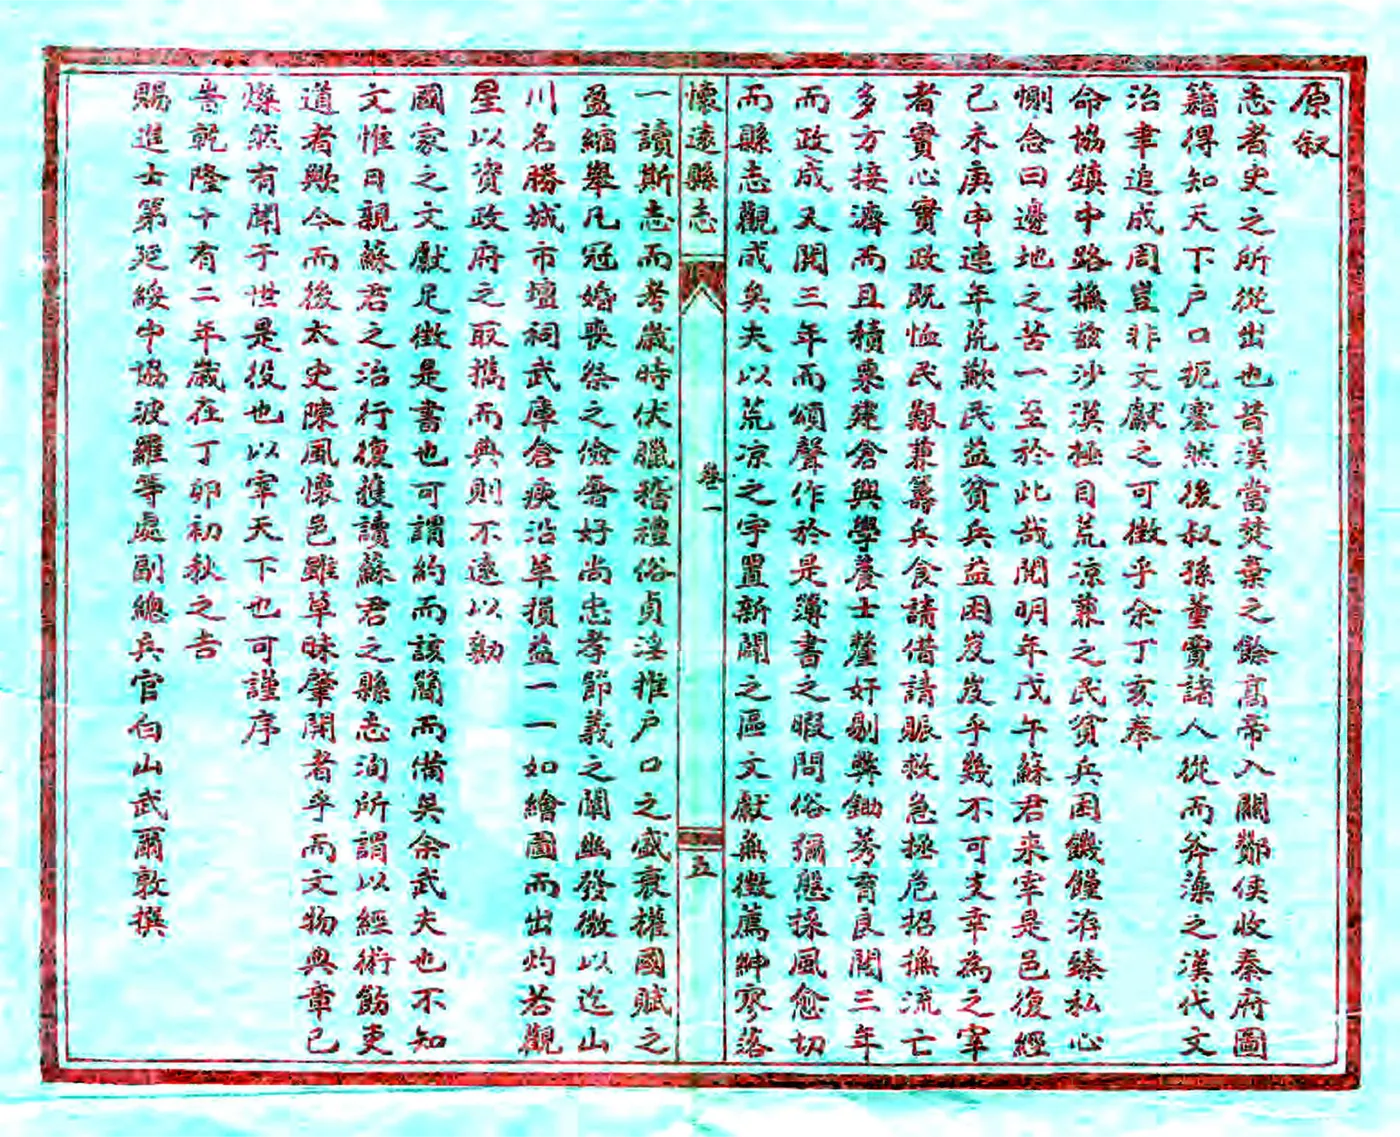 原叙
志者史之所從出也昔漢當焚棄之餘高帝入關酇侯收秦府圖
籍得知天下户口扼塞然後叔孫董賈諸人從而斧藻之漢代文
治聿追成周豈非文獻之可徵乎余丁亥奉
命協鎮中路撫兹沙漠極目荒凉蒹之民貧兵困饑饉洊臻私心
惻念曰邊地之苦一至於此哉閲明年戊午蘇君来宰是邑復經
己未庚申連年荒歉民益貧兵益困岌岌乎幾不可支幸為之宰
者實心實政既恤民艱蒹籌兵食請借請賑救急拯危招撫流亡
多方接濟而且積粟建倉興學養士釐奸剔弊鋤莠育良閲三年
而政成又閲三年而頌聲作於是簿書之暇問俗彌慇採風愈切
而縣志觀成矣夫以荒凉之字置新闢之區文獻無徵薦紳寥落
懷遠縣志
卷一
五
一讀斯志而考歲時伏臘稽禮俗貞淫推户口之盛衰權國賦之
盈縮舉凡冠婚喪祭之儉奢好尚忠孝節義之闡幽發微以迄山
川名勝城市壇祠武庫倉瘐沿革損益一一如繪圖而出灼若觀
星以資政府之取攜而典則不遠以勷
國家之文獻足徵是書也可謂約而該簡而備矣余武夫也不知
文惟日親蘇君之治行復獲讀蘇君之縣志洵所謂以經術飭吏
道者歟今而後太史陳風懷邑雖草昧肇開者乎而文物典章已
燦然有聞于世是役也以宰天下也可謹序
旹乾隆十有二年歲在丁卯初秋之吉
賜進士第延綏中協波羅等處副總兵官白山武爾敦撰